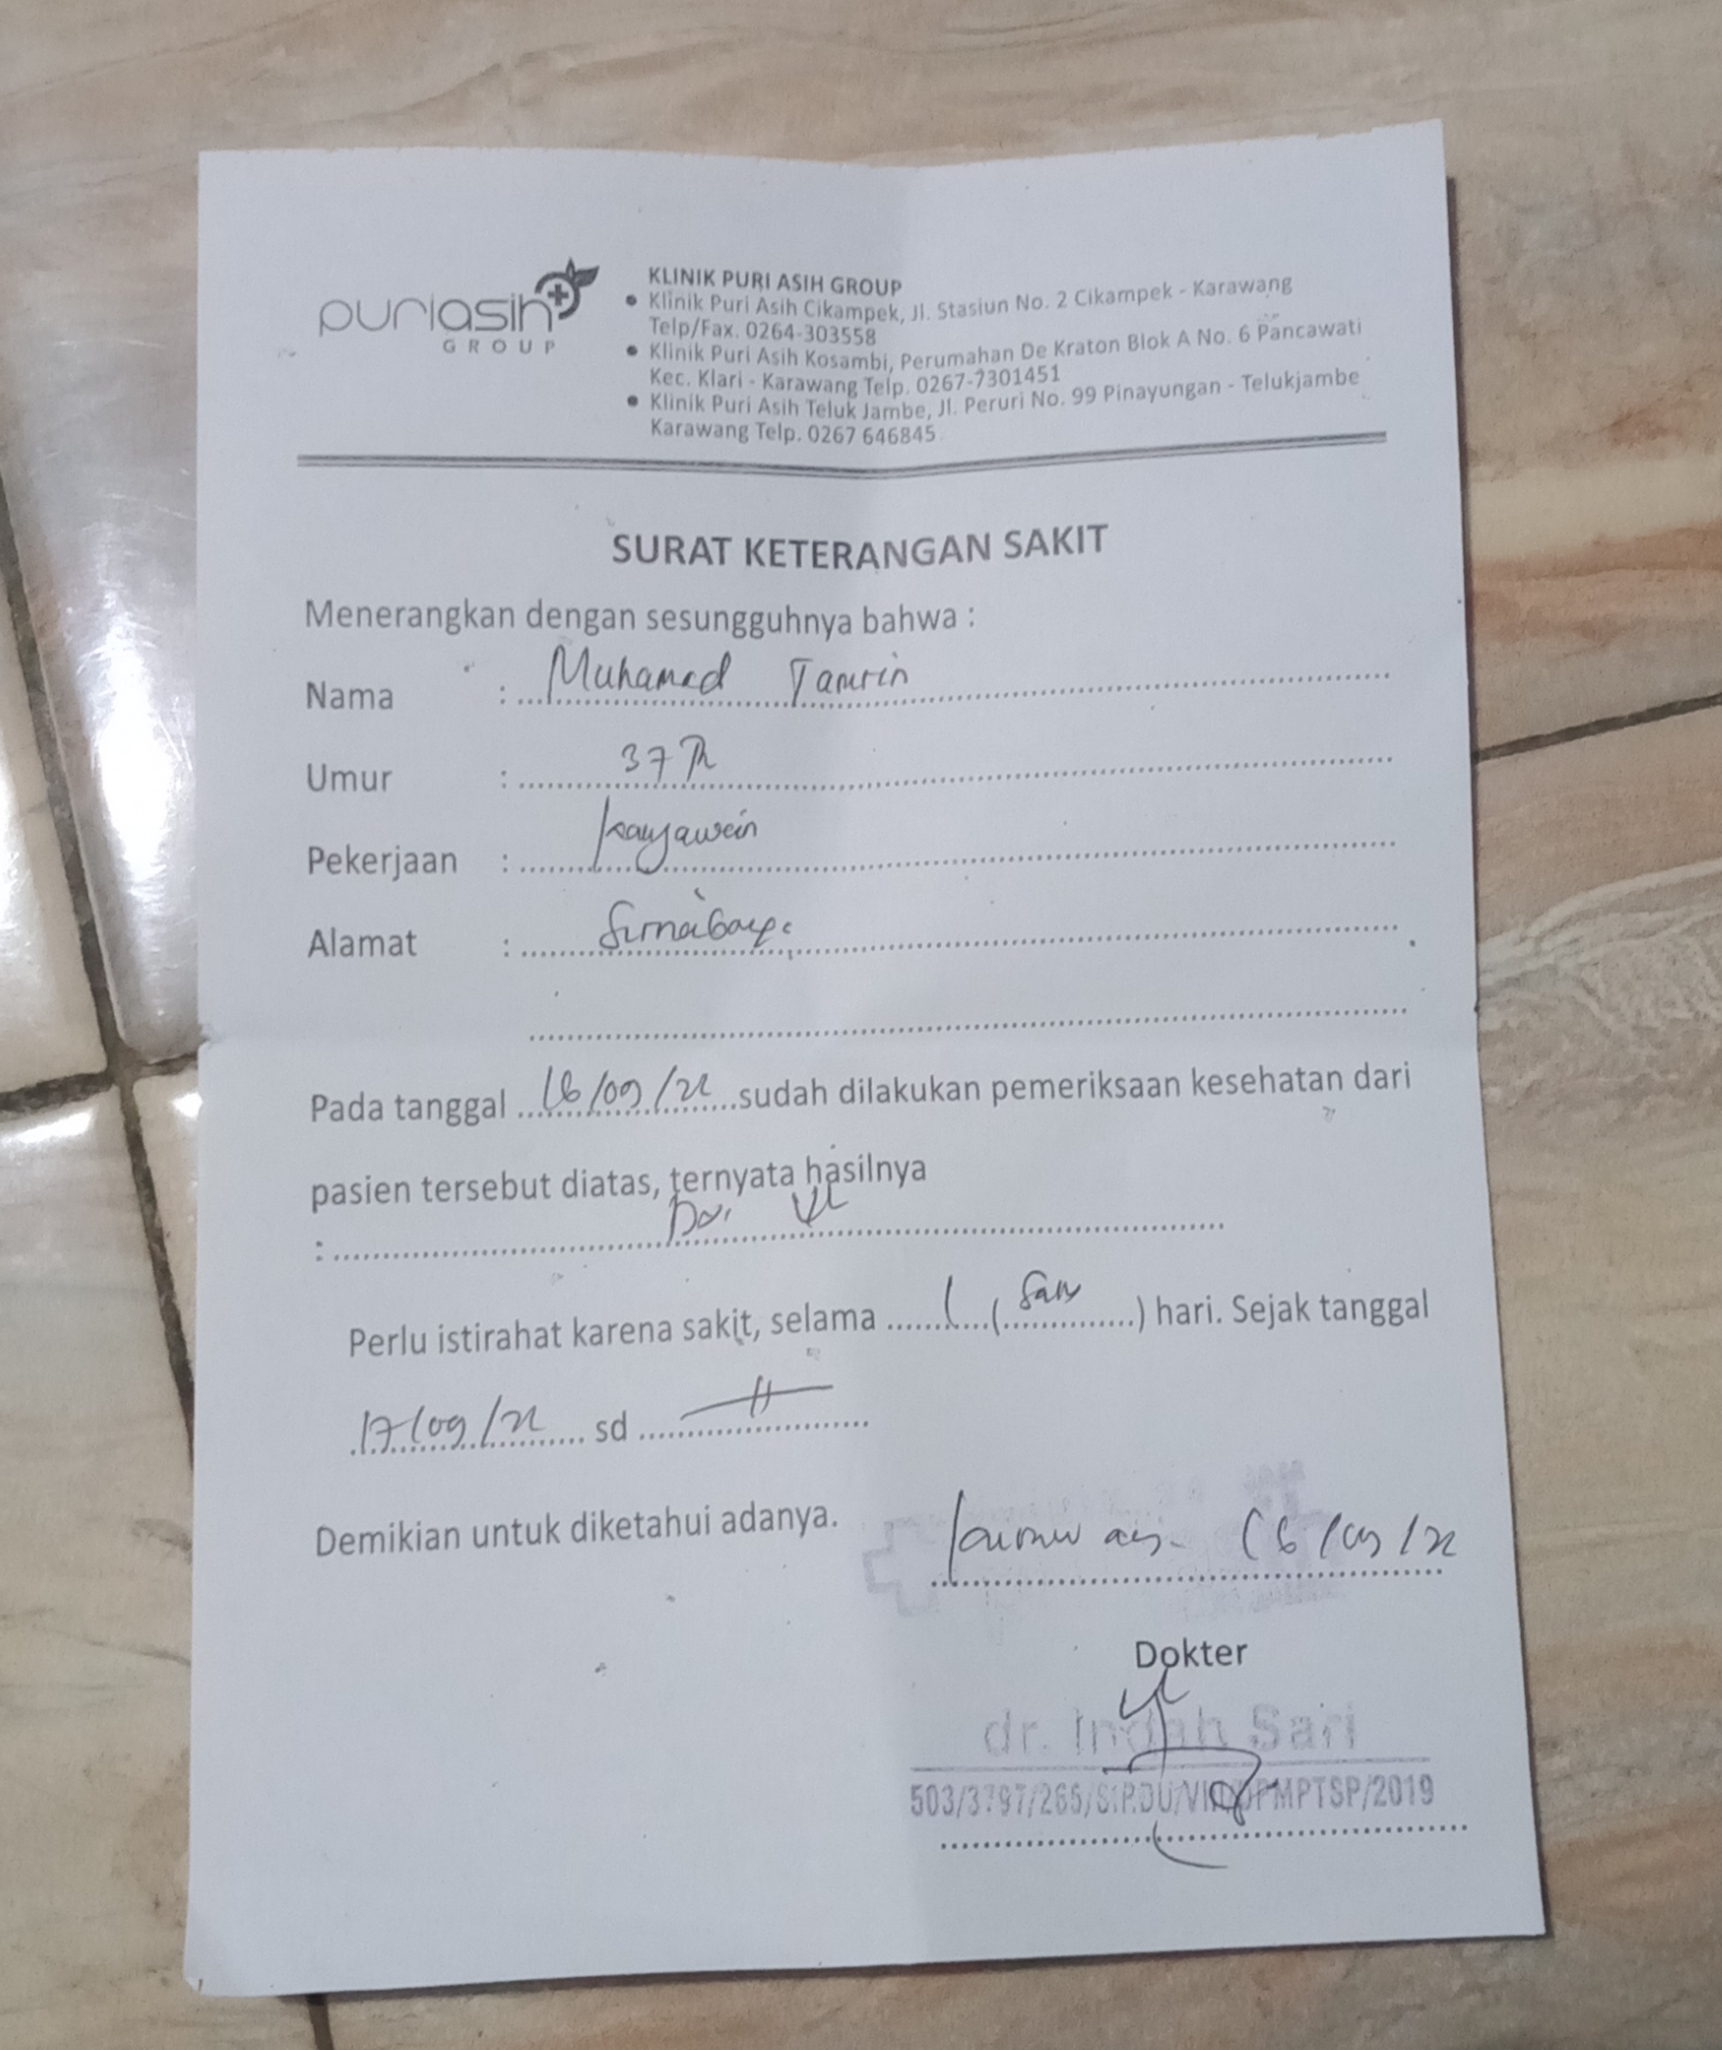 puriasih
GROUP
KLINIK PURI ASIH GROUP
• Klinik Puri Asih Cikampek, Jl. Stasiun No. 2 Cikampek - Karawang
Telp/Fax. 0264-303558
• Klinik Puri Asih Kosambi, Perumahan De Kraton Blok A No. 6 Pancawati
Kec. Klari - Karawang Telp. 0267-7301451
• Klinik Puri Asih Teluk Jambe, Jl. Peruri No. 99 Pinayungan - Telukjambe
Karawang Telp. 0267 646845
SURAT KETERANGAN SAKIT
Menerangkan dengan sesungguhnya bahwa :
Nama : Muhamad Tamrin
Umur : 37 Th
Pekerjaan : karyawan
Alamat :
Pada tanggal 16/09/22 sudah dilakukan pemeriksaan kesehatan dari
pasien tersebut diatas, ternyata hasilnya
:
Perlu istirahat karena sakit, selama 1 (satu) hari. Sejak tanggal
17/09/22 sd
Demikian untuk diketahui adanya.
16/09/22
Dokter
dr. Indah Sari
503/3797/265/SIP.DU/VII/DPMPTSP/2019